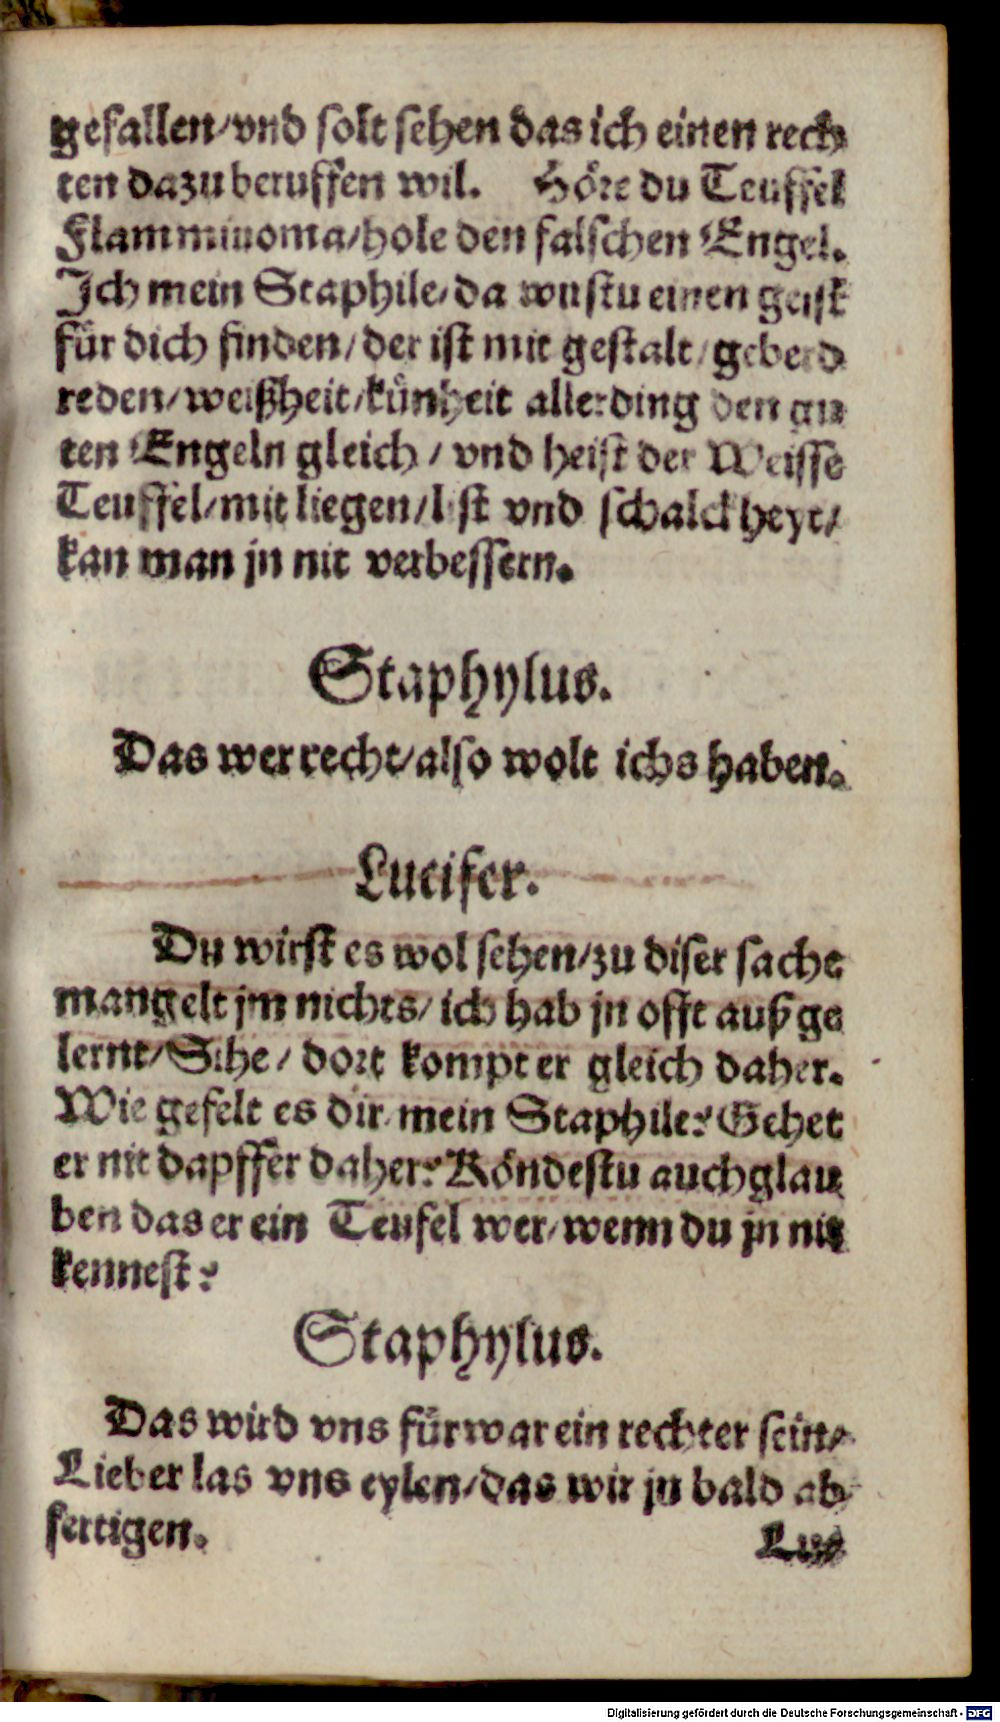 gefallen/vnd solt sehen das ich einen rech
ten dazu beruffen wil. Höre du Teuffel
Flamminoma/hole den falschen Engel.
Ich mein Staphile/da wustu einen geist
für dich finden/der ist mit gestalt/geberd
reden/weißheit/künheit allerding den gu
ten Engeln gleich/vnd heist der Weisse
Teuffel/mit liegen/list vnd schalckheyt/
kan man jn nit verbessern.
Staphylus.
Das wer recht/also wolt ichs haben.
Lucifer.
Du wirst es wol sehen/zu diser sache
mangelt jm nichts/ich hab jn offt außge
lernt/Sihe/dort kompt er gleich daher.
Wie gefelt es dir mein Staphile? Gehet
er nit dapffer daher? Köndestu auch glau
ben das er ein Teufel wer/wenn du jn nit
kennest?
Staphylus.
Das wird vns fürwar ein rechter sein/
Lieber las vns eylen/das wir jn bald ab
fertigen.
Luc
Digitalisierung gefördert durch die Deutsche Forschungsgemeinschaft - DFG